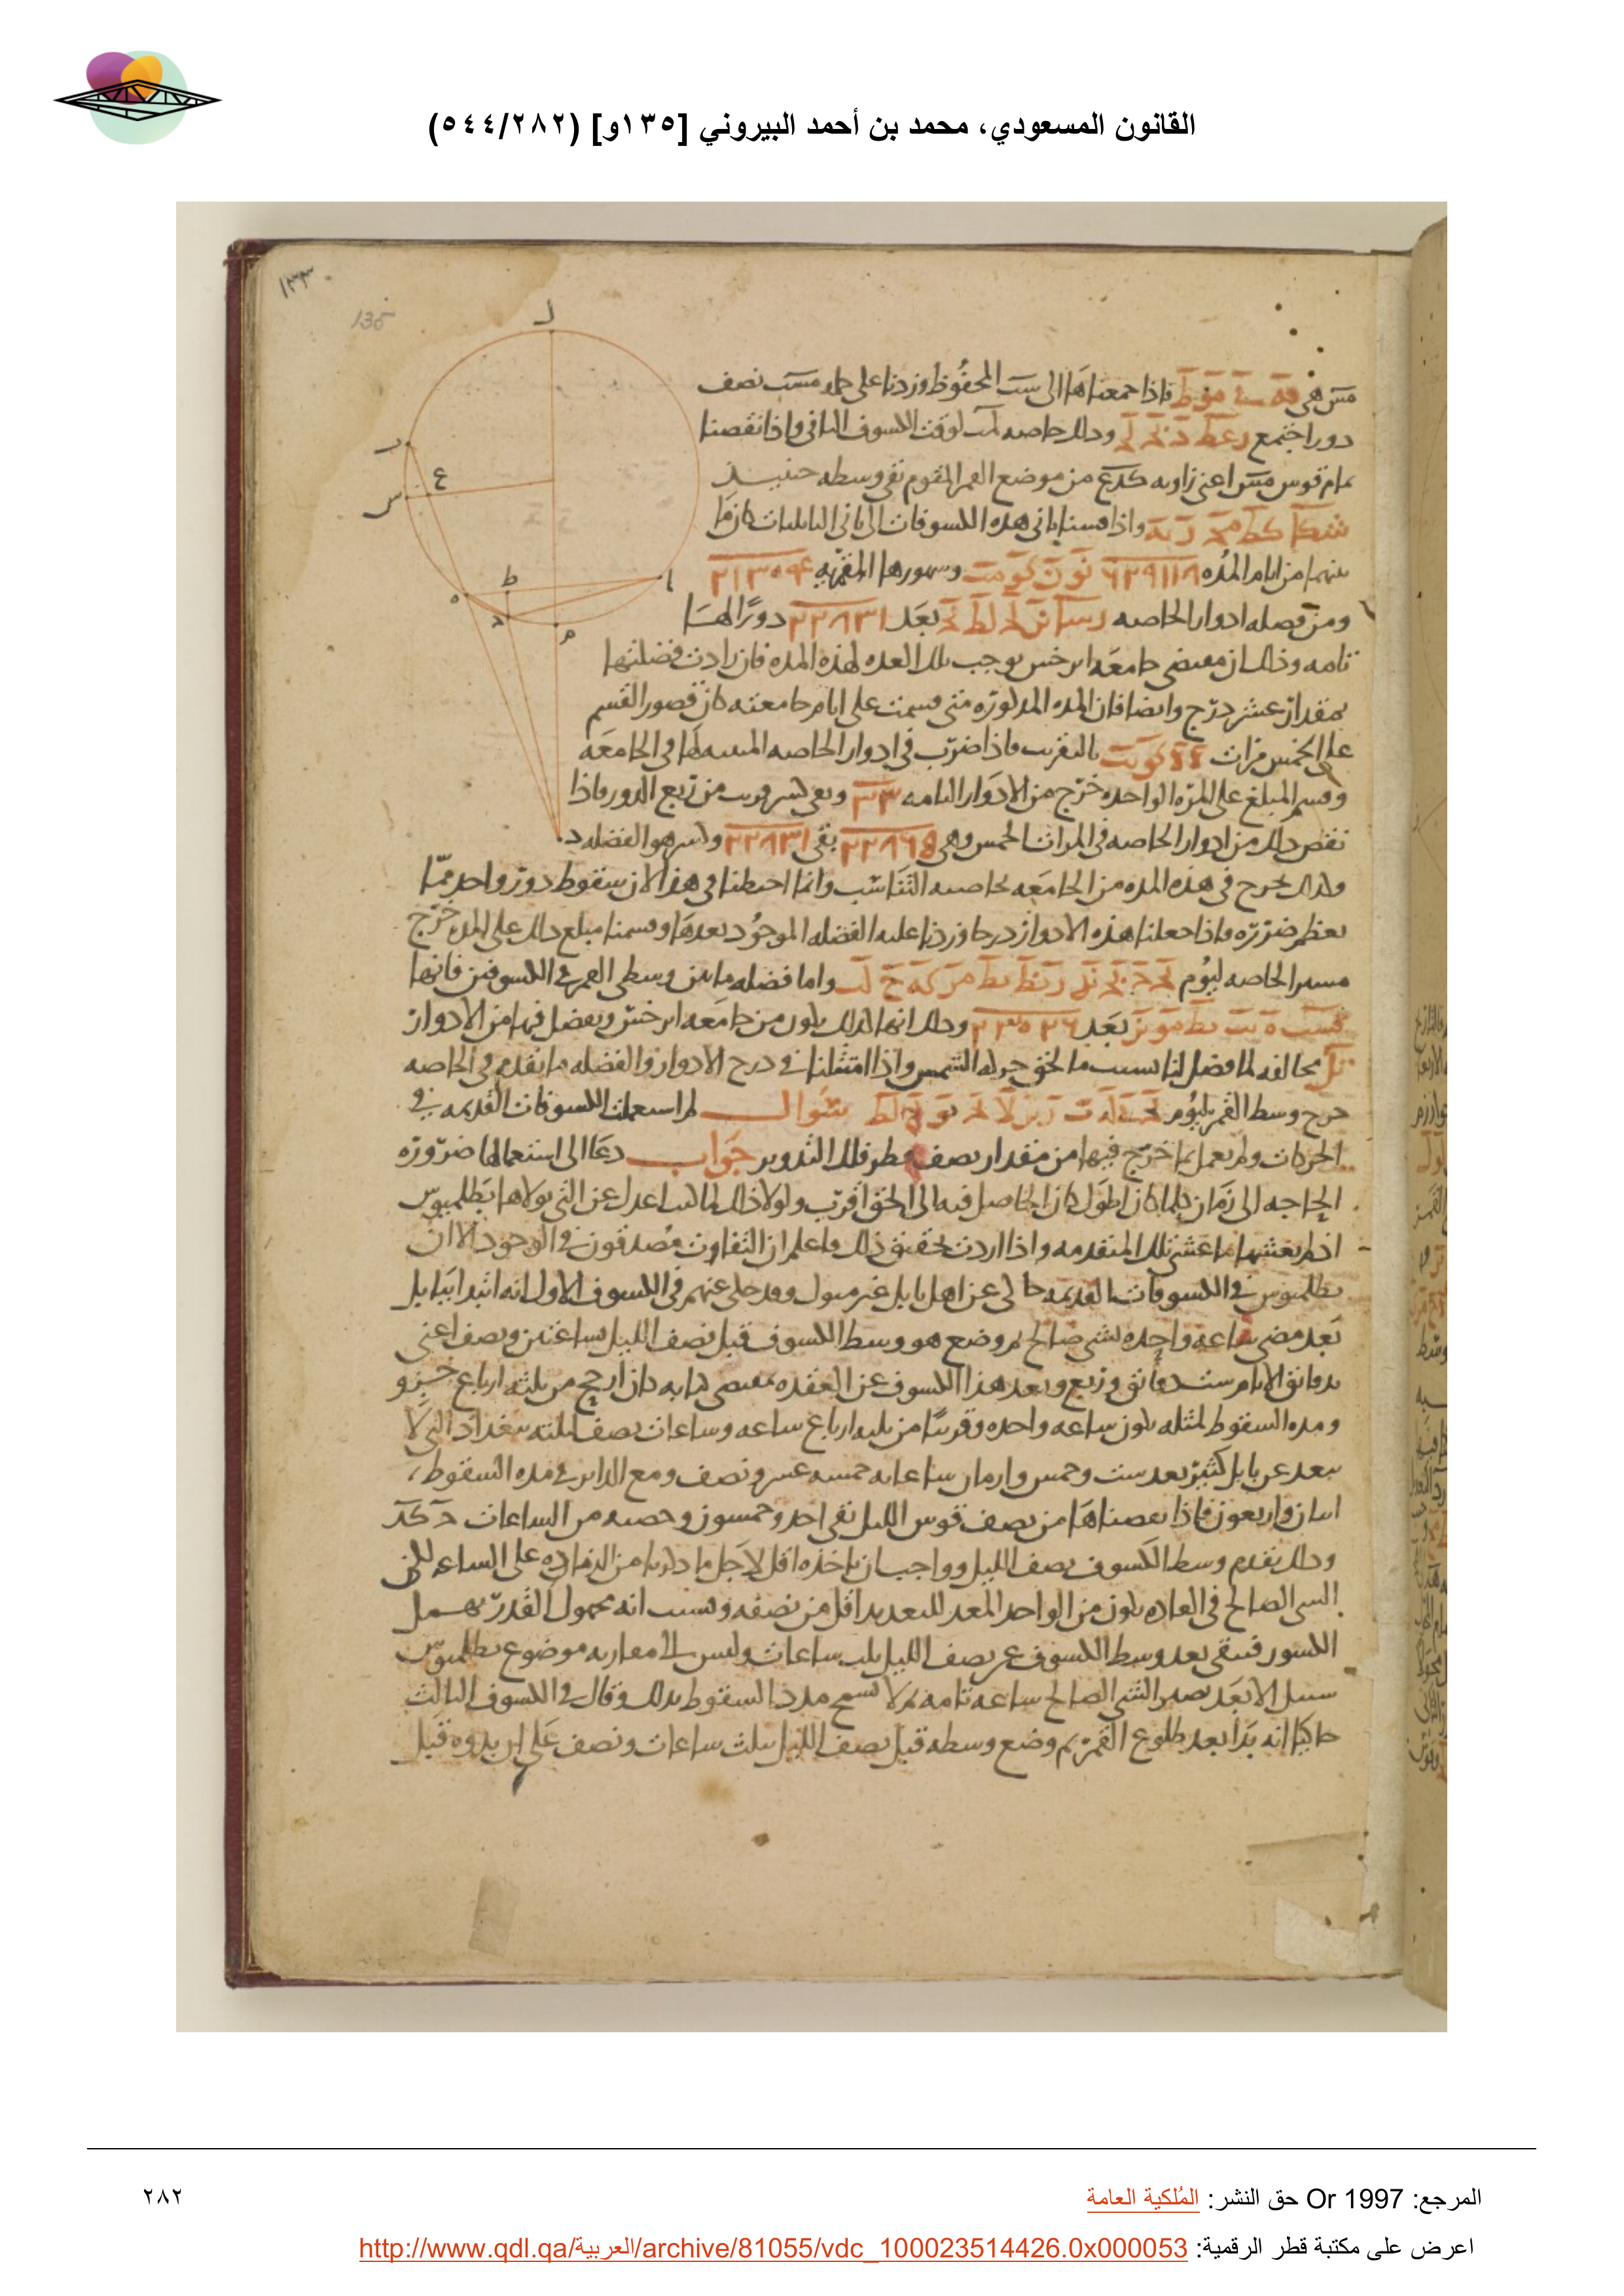 القانون المسعودي، محمد بن أحمد البيروني [١٣٥و] (٥٤٤/٢٨٢)
١٣٣
135
فاذا جمعناها الى ست المحفوظ وزدنا على نصف
دورا اجتمع وذلك خاصه لوقت الكسوف الثانى واذا نقصنا
تمام قوس اعنى زاويه من موضع القمر المقوم بقى وسطه حينيذ
واذا قسنا ثانى هذه الكسوفات الى ثانى البابليات كان ما
بينهما من ايام المده ٦٢٩١١٨ وشهورها القمريه ٢١٣٠٩٤
ومن فضله ادوار الخاصه بعد ٢٢٨٣١ دورا لها
تامه وذلك ان مقتضى جامعه ابرخس يوجب تلك العده لهذه المده فان زادت فضلتها
بمقدار عشر درج وايضا فان المده المذكوره متى قسمت على ايام جامعته كان قصور القسم
على الخمس مرات بالتقريب فاذا ضرب فى ادوار الخاصه المسه لها فى الجامعه
وقسم المبلغ على المره الواحده خرج من الادوار التامه ٣٣ وبقى كسر قريب من ربع الدور فاذا
نقص ذلك من ادوار الخاصه فى المرات الخمس وهى ٢٢٨٦٥ بقى ٢٢٨٣١ وكسر هو الفضله
وكذلك يخرج فى هذه المده من الجامعه بخاصيه التناسب وانما احتطنا فى هذا لان سقوط دور واحد مما
يعظم ضرره فاذا جعلنا هذه الادوار درجا وزدنا عليه الفضله الموجود بعدها وقسمنا مبلغ ذلك على المده خرج
مسير الخاصه ليوم واما فضله ما بين وسطى القمر فى الكسوفين فانها
بعد ٢٣٠٢٦ وذلك انها كذلك يكون من جامعه ابرخس ويفضل فيها من الادوار
مخالفه لما فضل لنا بسبب ما لحق حركه الشمس واذا امتثلنا فى درج الادوار والفضله ما تقدم فى الخاصه
خرج وسط القمر ليوم سوال لم استعملت الكسوفات القديمه فى
الحركات ولم يعمل بما خرج فيها من مقدار نصف قطر فلك التدوير جواب دعا الى استعمالها ضروره
الحاجه الى زمان كلما كان اطول كان الحاصل فيه الى الحق اقرب ولولا ذلك لما عدل عن التى تولاها بطلميوس
اذ لم يغشها ما غشى تلك المتقدمه واذا اردت تحقيق ذلك فاعلم ان التفاوت فى الوجود الا ان
بطلميوس فى الكسوفات القديمه حاكى عن اهل بابل غير مسول وقد حكى عنهم فى الكسوف الاول انه ابتدا ببابل
بعد مضى ساعه واحده بشى صالح ثم وضع هو وسط الكسوف قبل نصف الليل بساعتين ونصف اعنى
بدقائق الايام ست دقائق وربع وبعد هذا الكسوف عن العقده بمقتضى كتابه كان ارجح من ثلثه ارباع جزو
ومده السقوط لمثله يكون ساعه واحده وقريبا من ثلثه ارباع ساعه وساعات نصف ليلته ببغداد التى لا
تبعد عن بابل كثير بعد ست وخمس وازمان ساعاته خمسه عشر ونصف ومع الداير فى مده السقوط
اثنان واربعون فاذا نقصناها من نصف قوس الليل بقى احد وخمسون وحصته من الساعات
وذلك تقدم وسط الكسوف نصف الليل وواجب ان ناخذه اقل لاجل ما ذكرنا من الزياده على الساعه لكن
الشى الصالح فى العاده يكون من الواحد المعد للتعديد اقل من نصفه وبسبب انه مجهول القدر يهمل
الكسور فيبقى بعد وسط الكسوف عن نصف الليل ثلث ساعات وليس الى مقاربه موضوع بطلميوس
سبيل الا بعد تصير الشى الصالح ساعه تامه ثم لا تسمح مدد السقوط بذلك وقال فى الكسوف الثالث
حاكيا انه بدا بعد طلوع القمر ثم وضع وسطه قبل نصف الليل بثلث ساعات ونصف على ان بدوه قبل
المرجع: Or 1997 حق النشر: المُلكية العامة
٢٨٢
اعرض على مكتبة قطر الرقمية: http://www.qdl.qa/العربية/archive/81055/vdc_100023514426.0x000053